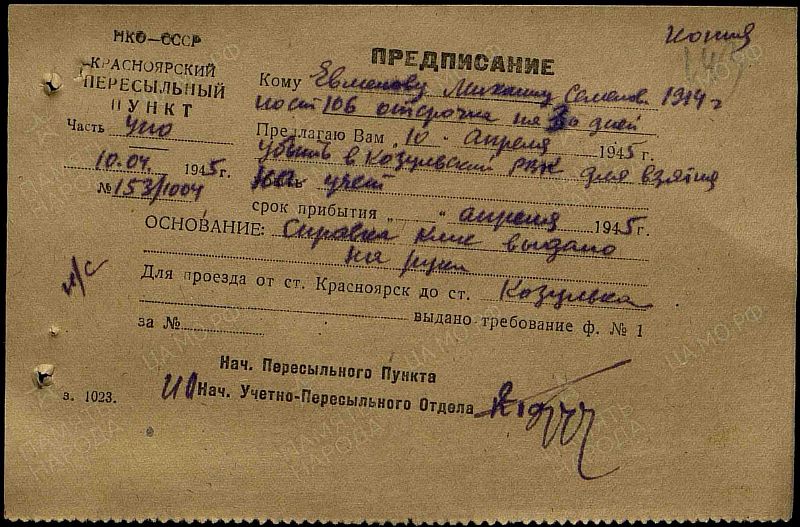 Копия
НКО—СССР
КРАСНОЯРСКИЙ
ПЕРЕСЫЛЬНЫЙ
ПУНКТ
Часть упо
10.04. 1945г.
№ 153/1004
ПРЕДПИСАНИЕ
Кому Евменову Михаилу Семенов. 1914 г
пост 106 отсрочка на 30 дней
Предлагаю Вам „10" апреля 1945 г.
убыть в Козульский РВК для взятия
на учет
срок прибытия „ " апреля 1945 г.
ОСНОВАНИЕ: Справка выдано
на руки
л/с
Для проезда от ст. Красноярск до ст. Козулька
выдано требование ф. № 1
за №
Нач. Пересыльного Пункта
ИО Нач. Учетно-Пересыльного Отдела
з. 1023.
ПАМЯТЬ НАРОДА
ЦАМО.РФ